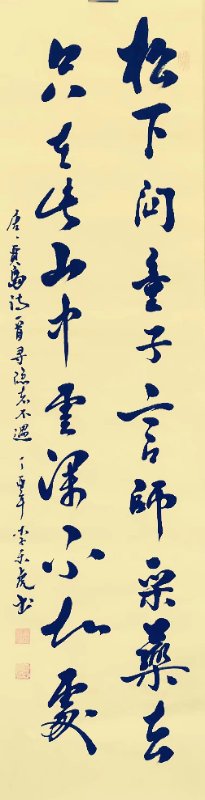 松下问童子言師采藥去
只在此山中雲深不知處
唐、賈島詩一首尋隱者不遇 丁酉年 李 虎书